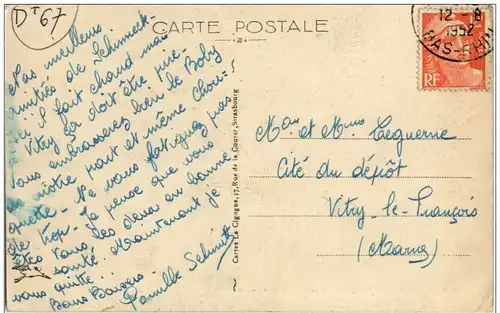 Dt 67
CARTE POSTALE
12-8
1952
BAS-RHIN
RF
Nos meilleures
amitiés de Schirmeck
où il fait chaud mais
Vitry ça doit être pire
Vous embrasserez bien le Boby
de notre part et même Chou-
quette - Ne vous fatiguez pas
de trop - Je pense que vous
êtes tous les deux en bonne
santé. Maintenant je
vous quitte.
Bons Baisers
Famille Schmitt
Cartes La Cigogne, 17, Rue de la Course, Strasbourg
Mr et Mme Leguerne
Cité du dépôt
Vitry-le-François
(Marne)